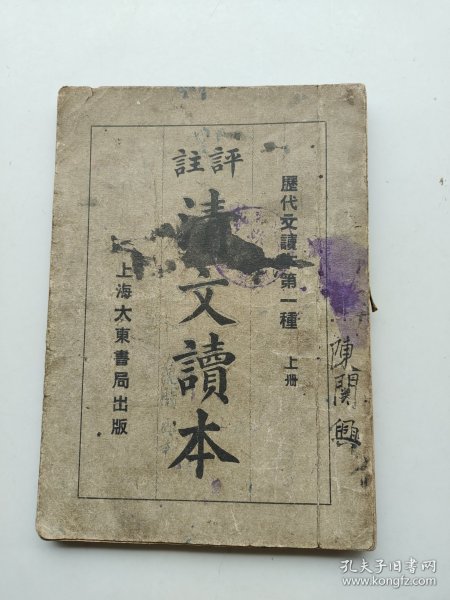 歷代文讀本第一種 上冊
評註
清文讀本
上海大東書局出版
陳開興
孔夫子旧书网
www.kongfz.com